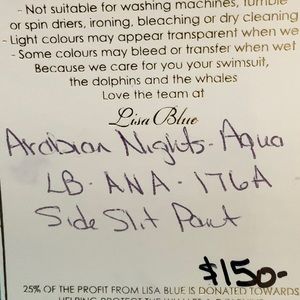 - Not suitable for washing machines, tumble
or spin driers, ironing, bleaching or dry cleaning
- Light colours may appear transparent when we
- Some colours may bleed or transfer when wet
Because we care for you your swimsuit,
the dolphins and the whales
Love the team at
Lisa Blue
Arabian Nights - Aqua
LB-ANA-176A
Side Slit Pant
$150-
25% OF THE PROFIT FROM LISA BLUE IS DONATED TOWARDS
HELPING PROTECT THE